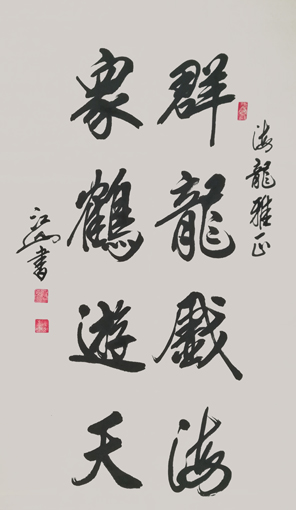 海龍雅正
群龍戲海
衆鶴遊天
江 書